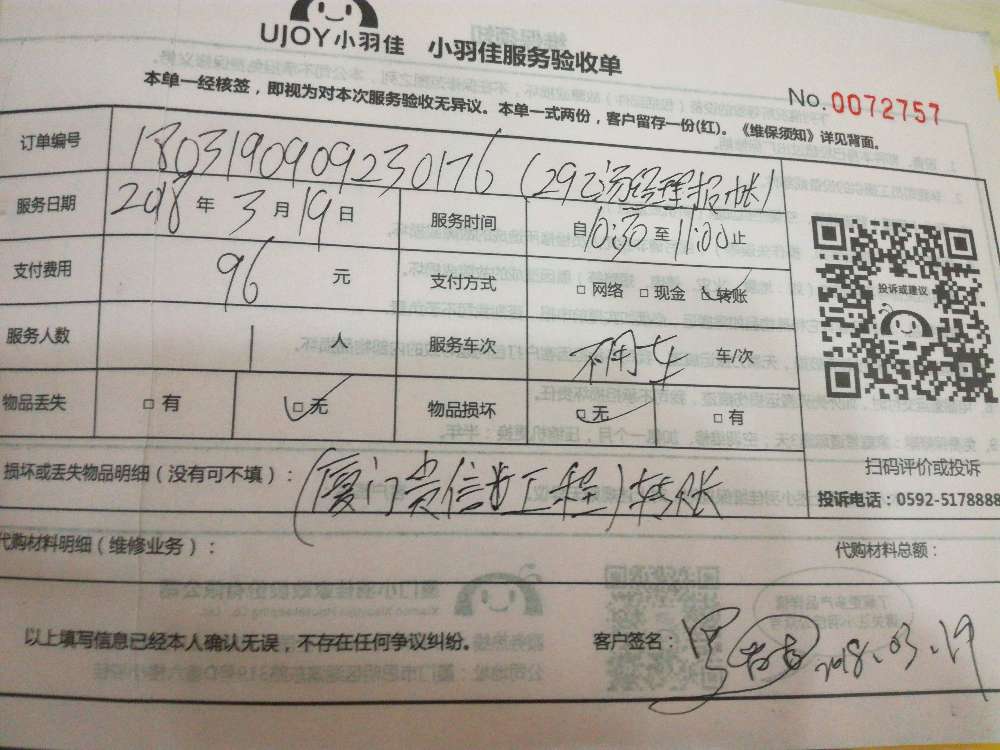 UJOY小羽佳 小羽佳服务验收单
No.0072757
本单一经核签，即视为对本次服务验收无异议。本单一式两份，客户留存一份(红)。《维保须知》详见背面。
订单编号 1803190909230176
服务日期 2018 年 3 月 19 日 服务时间 自 10:30 至 11:00 止
支付费用 96 元 支付方式 □ 网络 □ 现金 ☑ 转账
服务人数 1 人 服务车次 不用车 车/次
物品丢失 □ 有 ☑ 无 物品损坏 ☑ 无 □ 有
投诉或建议
扫码评价或投诉
投诉电话：0592-5178888
损坏或丢失物品明细（没有可不填）： 转账
代购材料明细（维修业务）： 代购材料总额：
以上填写信息已经本人确认无误，不存在任何争议纠纷。 客户签名： 2018.03.19